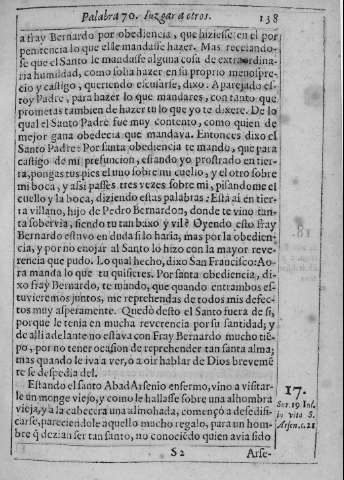 Palabra 70. Iuzgar a otros. 138
a fray Bernardo por obediencia, que hiziesse en el por
penitencia lo que elle mandasse hazer. Mas recelando-
se que el Santo le mandasse alguna cosa de extraordina-
ria humildad, como solia hazer en su proprio menospre-
cio y castigo, queriendo escusarse, dixo: Aparejado es-
toy Padre, para hazer lo que mandares, con tanto que
prometas tambien de hazer tu lo que yo te dixere. De lo
qual el Santo Padre fue muy contento, como quien de
mejor gana obedecia que mandava. Entonces dixo el
Santo Padre: Por santa obediencia te mando, que para
castigo de mi presuncion, estando yo prostrado en tier-
ra, pongas tus pies el uno sobre mi cuello, y el otro sobre
mi boca, y assi passes tres vezes sobre mi, pisandome el
cuello y la boca, diziendo estas palabras: Està ai en tier-
ra villano, hijo de Pedro Bernardon, donde te vino tan-
ta sobervia, siendo tu tan baxo y vil? Oyendo esto fray
Bernardo estuvo en duda si lo haria, mas por la obedien-
cia, y por no enojar al Santo lo hizo con la mayor reve-
rencia que pudo. Lo qual hecho, dixo San Francisco: Ao-
ra manda lo que tu quisieres. Por santa obediencia, di-
xo fray Bernardo, te mando, que quando entrambos es-
tuvieremos juntos, me reprehendas de todos mis defec-
tos muy asperamente. Quedò desto el Santo fuera de si,
porque le tenia en mucha reverencia por su santidad; y
de alli adelante no estava con Fray Bernardo mucho tiē-
po, por no tener ocasion de reprehender tan santa alma;
mas quando le iva a ver, o a oir hablar de Dios brevemē
te se despedia del.
Estando el santo Abad Arsenio enfermo, vino a visitar-
le un monge viejo, y como le hallasse sobre una alhombra
vieja, y a la cabecera una almohada, començò a desedifi-
carse, pareciendole aquello mucho regalo, para un hom-
bre q̄ dezian ser tan santo, no conociēdo quien avia sido
17.
Sur. 19. Iul.
in vita S.
Arsen. c. 21
S 2 Arse-